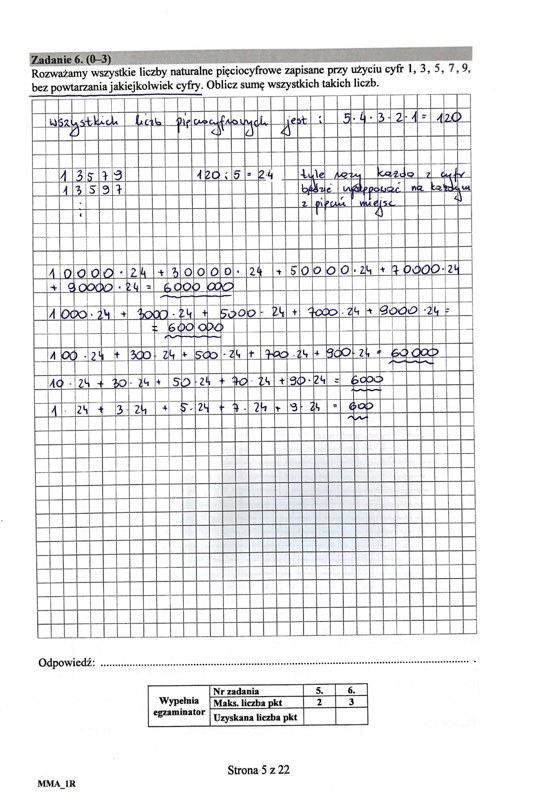 Zadanie 6. (0–3)
Rozważamy wszystkie liczby naturalne pięciocyfrowe zapisane przy użyciu cyfr 1, 3, 5, 7, 9,
bez powtarzania jakiejkolwiek cyfry. Oblicz sumę wszystkich takich liczb.
wszystkich liczb pięciocyfrowych jest : 5·4·3·2·1 = 120
1 3 5 7 9 120 : 5 = 24 tyle razy każda z cyfr
1 3 5 9 7 będzie występować na każdym
⋮ z pięciu miejsc
10000·24 + 30000·24 + 50000·24 + 70000·24
+ 90000·24 = 6000 000
1000·24 + 3000·24 + 5000·24 + 7000·24 + 9000·24 =
= 600 000
100·24 + 300·24 + 500·24 + 700·24 + 900·24 = 60 000
10·24 + 30·24 + 50·24 + 70·24 + 90·24 = 6000
1·24 + 3·24 + 5·24 + 7·24 + 9·24 = 600
Odpowiedź: ..........................................................................................................
Wypełnia egzaminator
Nr zadania 5. 6.
Maks. liczba pkt 2 3
Uzyskana liczba pkt
Strona 5 z 22
MMA_1R